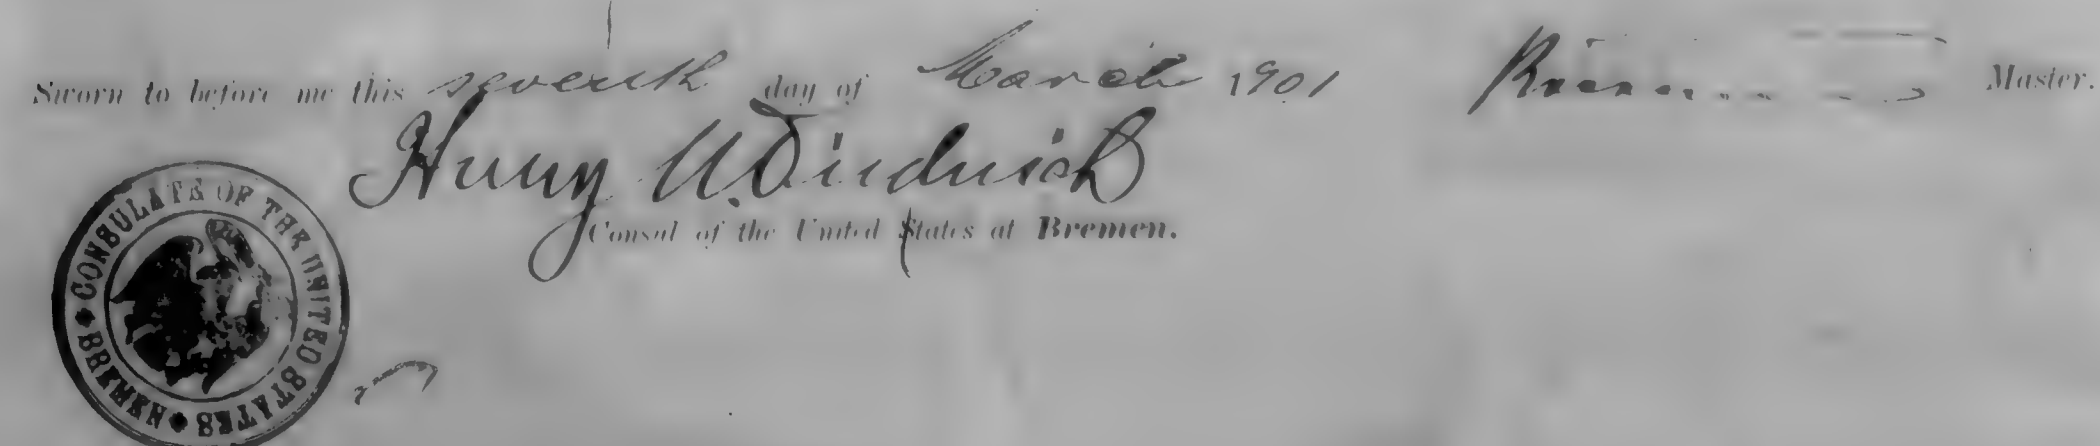 Sworn to before me this seventh day of March 1901 Master.
Henry W. Diederich
Consul of the United States at Bremen.
CONSULATE OF THE UNITED STATES
BREMEN